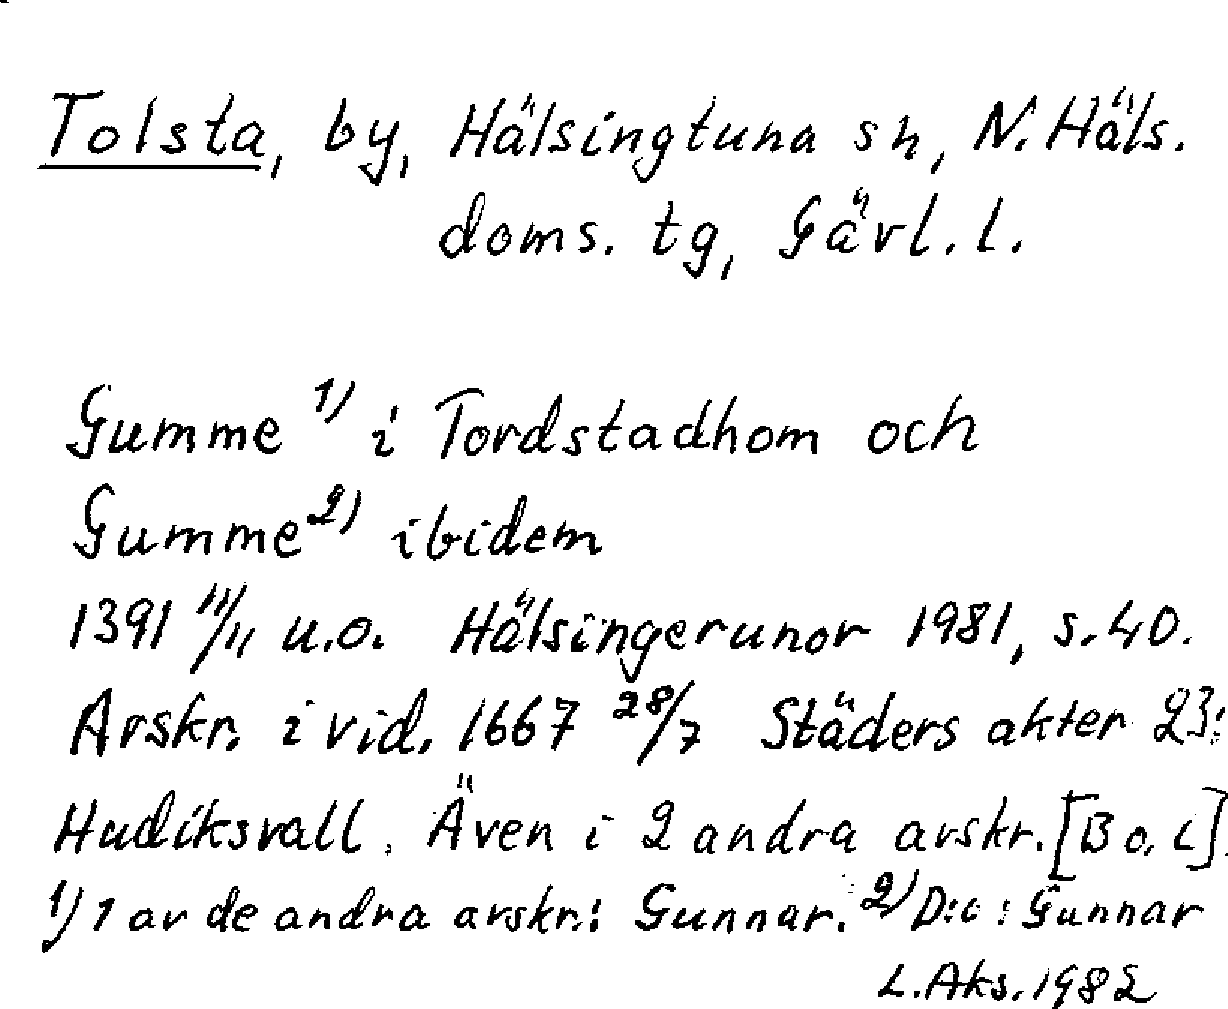 Tolsta, by, Hälsingtuna sn, N. Häls.
doms. tg, Gävl. l.
Gumme 1) i Tordstadhom och
Gumme 2) ibidem
1391 11/11 u.o. Hälsingerunor 1981, s. 40.
Avskr. i vid. 1667 28/7 Städers akter 23:
Hudiksvall. Även i 2 andra avskr. [B o. C]
1) 1 av de andra avskr: Gunnar. 2) D:o: Gunnar
L. Aks. 1982